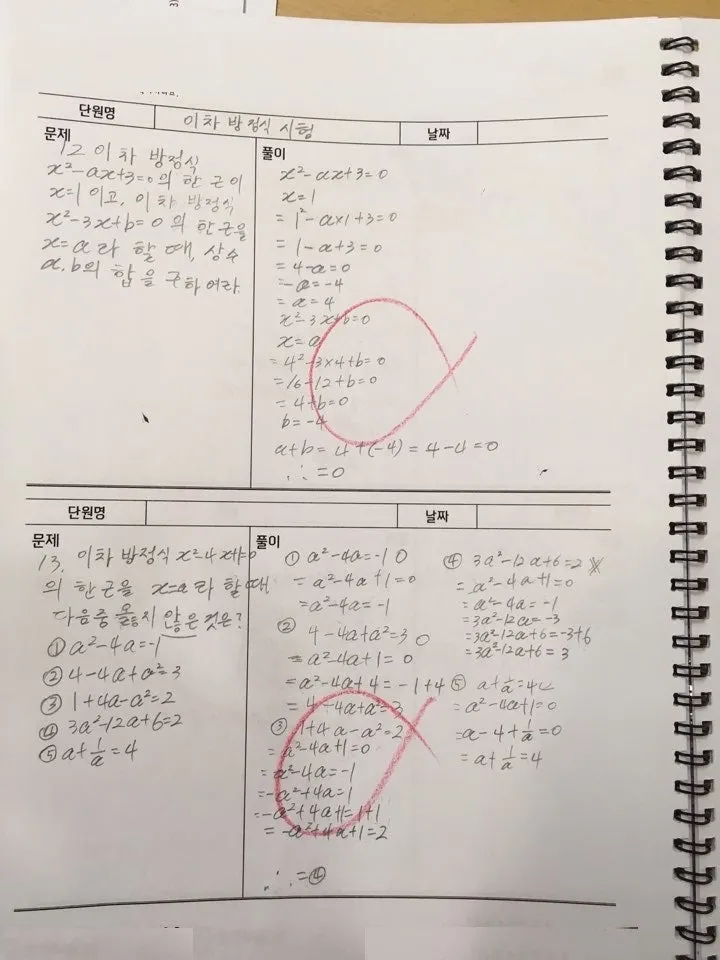 단원명
이차 방정식 시험
날짜
문제
12 이차 방정식
x²-ax+3=0의 한 근이
x=1이고, 이차 방정식
x²-3x+b=0의 한근을
x=a라 할 때, 상수
a.b의 합을 구하여라.
풀이
x²-ax+3=0
x=1
=1²-a×1+3=0
=1-a+3=0
=4-a=0
=-a=-4
=a=4
x²-3x+b=0
x=a
=4²-3×4+b=0
=16-12+b=0
=4+b=0
b=-4
a+b=4+(-4)=4-4=0
∴=0
단원명
날짜
문제
13. 이차 방정식 x²-4x+1=0
의 한근을 x=a라 할 때
다음중 옳지 않은 것은?
①a²-4a=-1
②4-4a+a²=3
③1+4a-a²=2
④3a²-12a+6=2
⑤a+1/a=4
풀이
①a²-4a=-1 O
=a²-4a+1=0
=a²-4a=-1
②
4-4a+a²=3 O
=a²-4a+1=0
=a²-4a+4=-1+4
=4-4a+a²=3
③1+4a-a²=2
=a²-4a+1=0
=a²-4a=-1
=-a²+4a=1
=-a²+4a+1=1+1
=-a²+4a+1=2
∴=④
④3a²-12a+6=2 X
=a²-4a+1=0
=a²-4a=-1
=3a²-12a=-3
=3a²-12a+6=-3+6
=3a²-12a+6=3
⑤a+1/a=4
=a²-4a+1=0
=a-4+1/a=0
=a+1/a=4